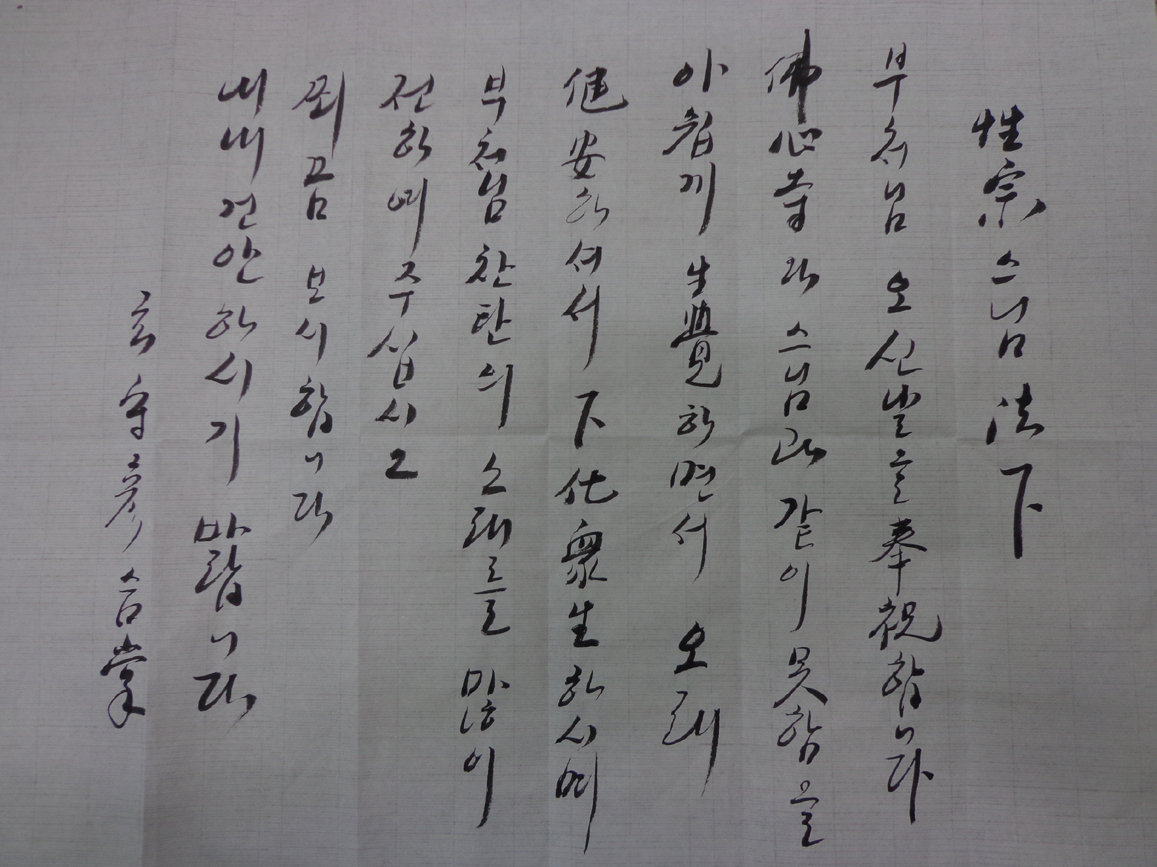 性宗스님 法下
부처님 오신날을 奉祝합니다
佛心寺 와 스님과 같이 못함을
아쉽게 生覺하면서 오래
健安하셔서 下化衆生하시며
부처님 찬탄의 소래를 많이
전하여 주십시고
뵈끔 보시합니다
내내 건안하시기 바랍니다
玄守彦 合掌